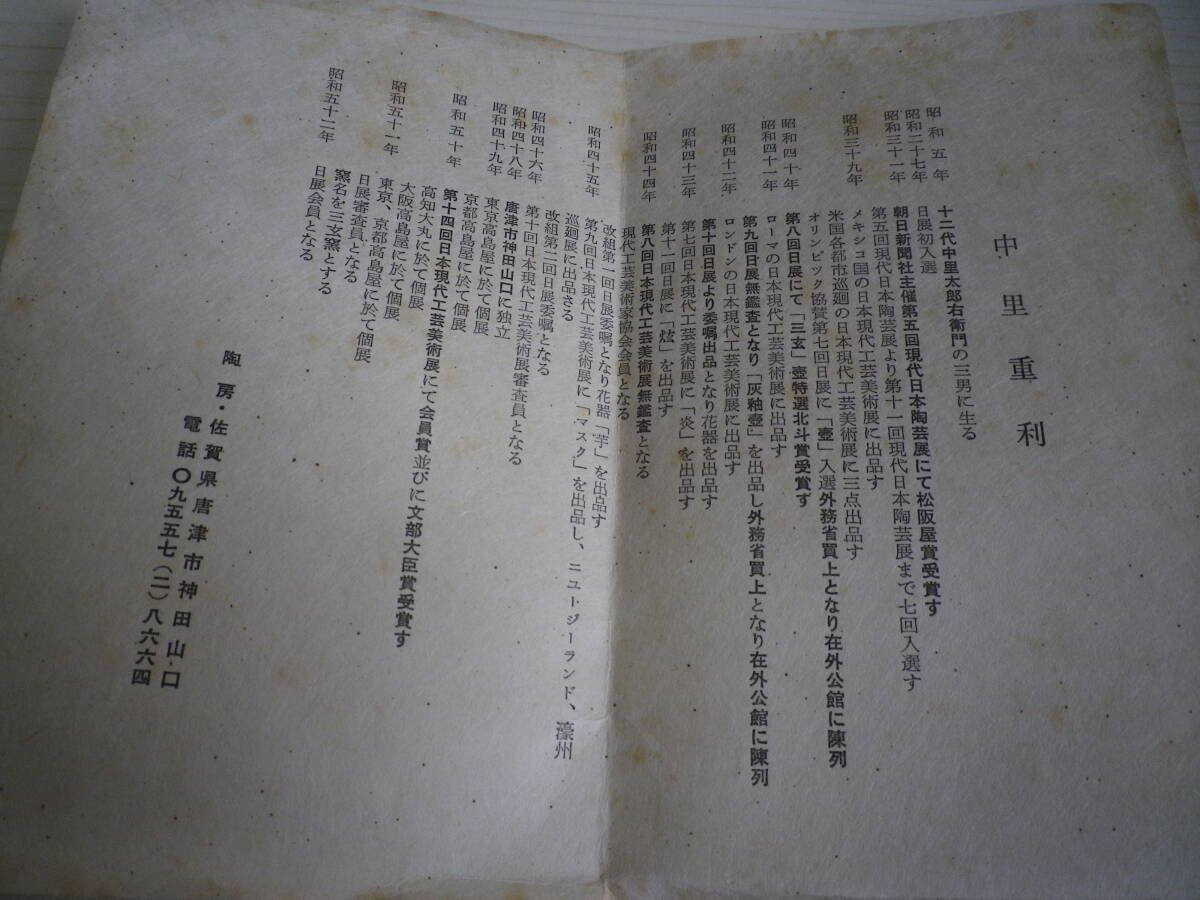 中里重利
昭和五年 十二代中里太郎右衛門の三男に生る
昭和二十七年 日展初入選
昭和三十一年 朝日新聞社主催第五回現代日本陶芸展にて松阪屋賞受賞す
第五回現代日本陶芸展より第十一回現代日本陶芸展まで七回入選す
昭和三十九年 メキシコ国の日本現代工芸美術展に出品す
米国各都市巡廻の日本現代工芸美術展に三点出品す
オリンピック協賛第七回日展に「壺」入選外務省買上となり在外公館に陳列
昭和四十年 第八回日展にて「三玄」壺特選北斗賞受賞す
昭和四十一年 ローマの日本現代工芸美術展に出品す
第九回日展無鑑査となり「灰釉壺」を出品し外務省買上となり在外公館に陳列
昭和四十二年 ロンドンの日本現代工芸美術展に出品す
第十回日展より委嘱出品となり花器を出品す
昭和四十三年 第七回日本現代工芸美術展に「炎」を出品す
第十一回日展に「炫」を出品す
昭和四十四年 第八回日本現代工芸美術展無鑑査となる
現代工芸美術家協会会員となる
改組第一回日展委嘱となり花器「芋」を出品す
昭和四十五年 第九回日本現代工芸美術展に「マスク」を出品し、ニュージーランド、濠州
巡廻展に出品さる
改組第二回日展委嘱となる
昭和四十六年 第十回日本現代工芸美術展審査員となる
昭和四十八年 唐津市神田山口に独立
昭和四十九年 東京高島屋に於て個展
京都高島屋に於て個展
昭和五十年 第十四回日本現代工芸美術展にて会員賞並びに文部大臣賞受賞す
高知大丸に於て個展
大阪高島屋に於て個展
昭和五十一年 東京、京都高島屋に於て個展
日展審査員となる
窯名を三玄窯とする
昭和五十二年 日展会員となる
陶房・佐賀県唐津市神田山口
電話〇九五五七(二)八六六四